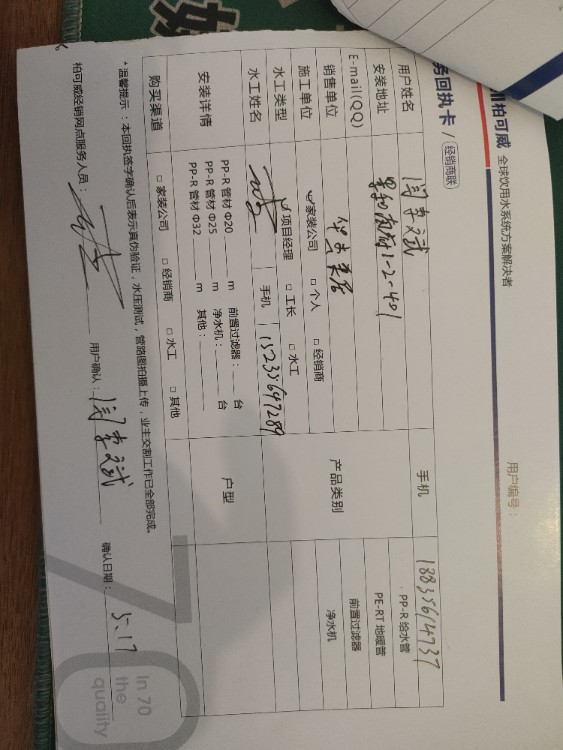 柏可威 全球饮用水系统方案解决者
务回执卡 / 经销商联
用户编号：
用户姓名 闫李文斌 手机 18835614737
安装地址 1-2-401
E-mail(QQ)
销售单位 产品类别 PP-R 给水管
PE-RT 地暖管
前置过滤器
净水机
施工单位 家装公司 □ 个人 □ 经销商
水工类型 项目经理 □ 工长 □ 水工
水工姓名 手机 15235647289
安装详情 PP-R 管材 Φ20 m 前置过滤器： 台
PP-R 管材 Φ25 m 净水机： 台
PP-R 管材 Φ32 m 其他：
户型
购买渠道 □ 家装公司 □ 经销商 □ 水工 □ 其他
*温馨提示：本回执签字确认后表示真伪验证，水压测试，管路图拍摄上传，业主交割工作已全部完成。
柏可威经销网点服务人员： 用户确认：闫李文斌 确认日期：5.17
In 70
the
quality